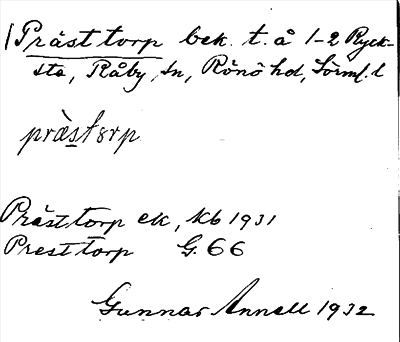 Prästtorp bek. t. å 1-2 Ryck-
sta, Råby, sn, Rönö hd, Sörml. l
prӕ̀stɷrp
Prästtorp ek, kb 1931
Presttorp G. 66
Gunnar Annell 1932